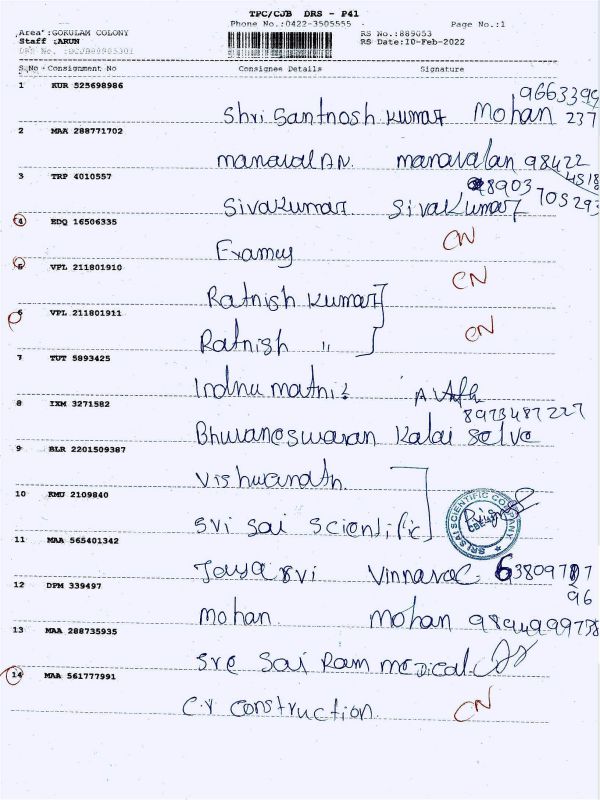 TPC/CJB DRS - P41
Phone No.:0422-3505555 Page No.:1
Area :GOKULAM COLONY RS No.:889053
Staff :ARUN RS Date:10-Feb-2022
S.No Consignment No Consignee Details Signature
1 KUR 525698986 9663399
Shri Santhosh Kumar Mohan 237
2 MAA 288771702
manavalan. manavalan 98422
3 TRP 4010557 4518
8903
Sivakumar Sivakumar 705293
4 EDQ 16506335
CN
5 VPL 211801910 CN
Ratnish Kumar
6 VPL 211801911 CN
Ratnish "
7 TUT 5893425
8 IXM 3271582 8973487227
Bhuvaneswaran Kalai Selve
9 BLR 2201509387
Vishwanath
10 KMU 2109840
Sri Sai Scientific
SRI SAI SCIENTIFIC COMPANY
11 MAA 565401342
12 DPM 339497 96
Mohan Mohan
13 MAA 288735935
Sre Sai Ram medical
14 MAA 561777991
C.Y Construction. CN